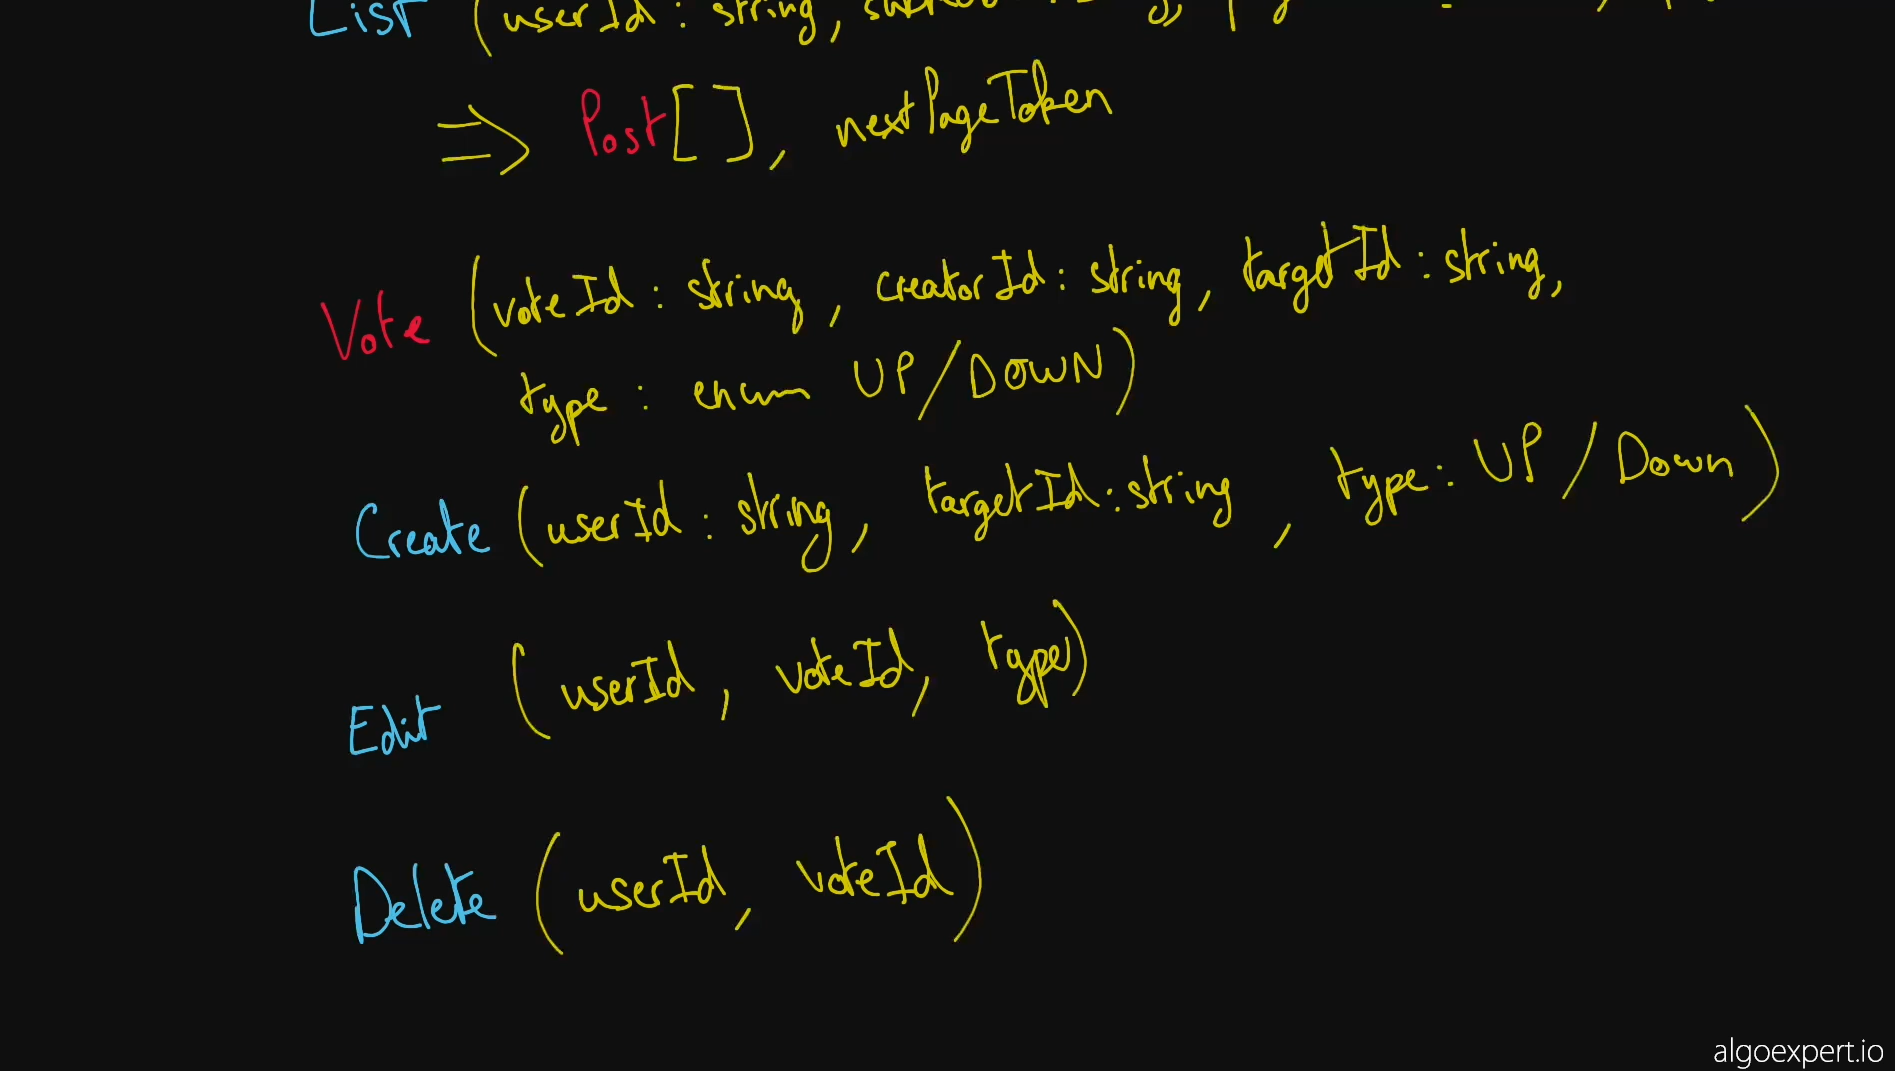 List (userId: string,
=> Post[], nextPageToken
Vote (voteId: string, creatorId: string, targetId: string,
type: enum UP/DOWN)
Create (userId: string, targetId: string, type: UP/Down)
Edit (userId, voteId, type)
Delete (userId, voteId)
algoexpert.io